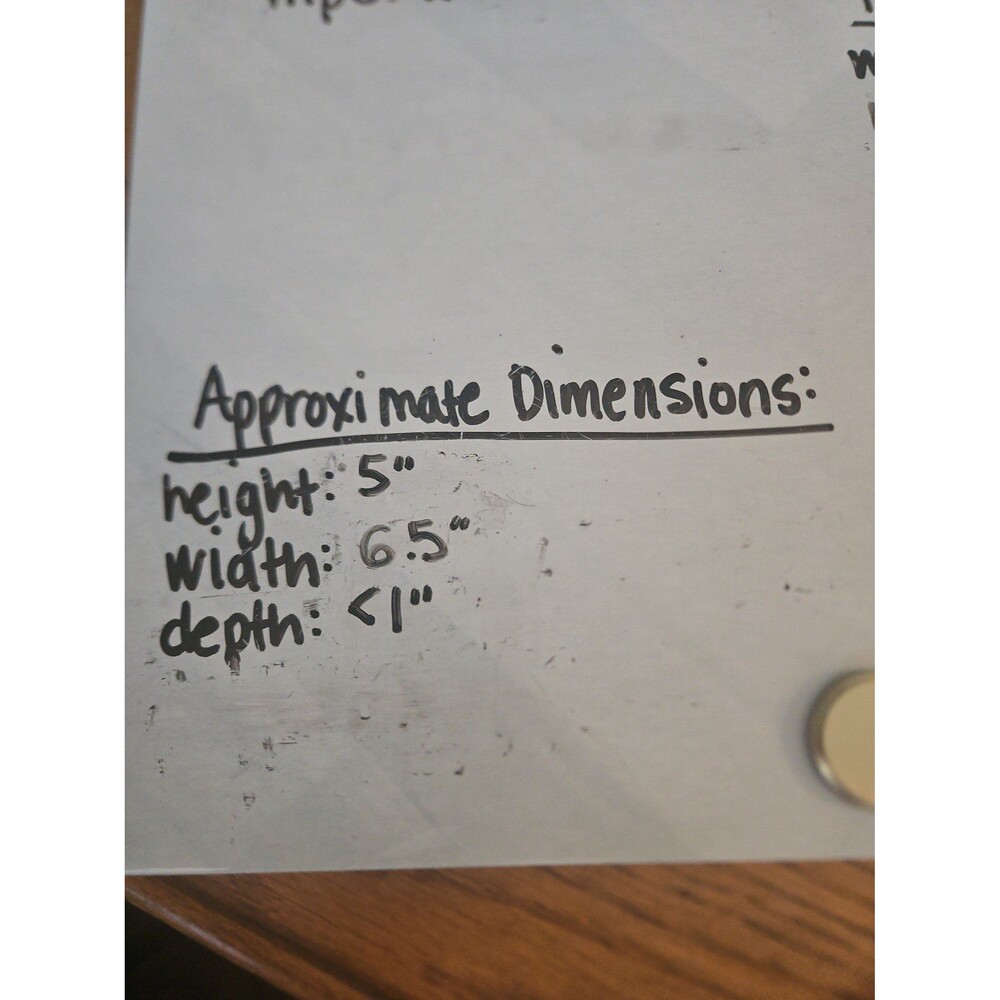 Approximate Dimensions:
height: 5"
width: 6.5"
depth: <1"